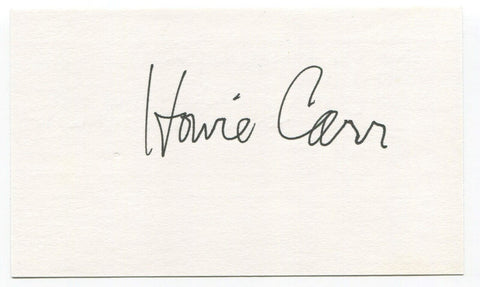 Howie Carr